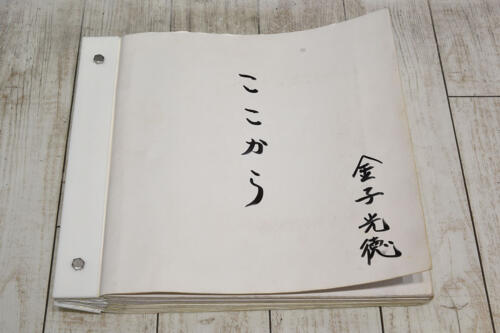 ここから
金子光徳